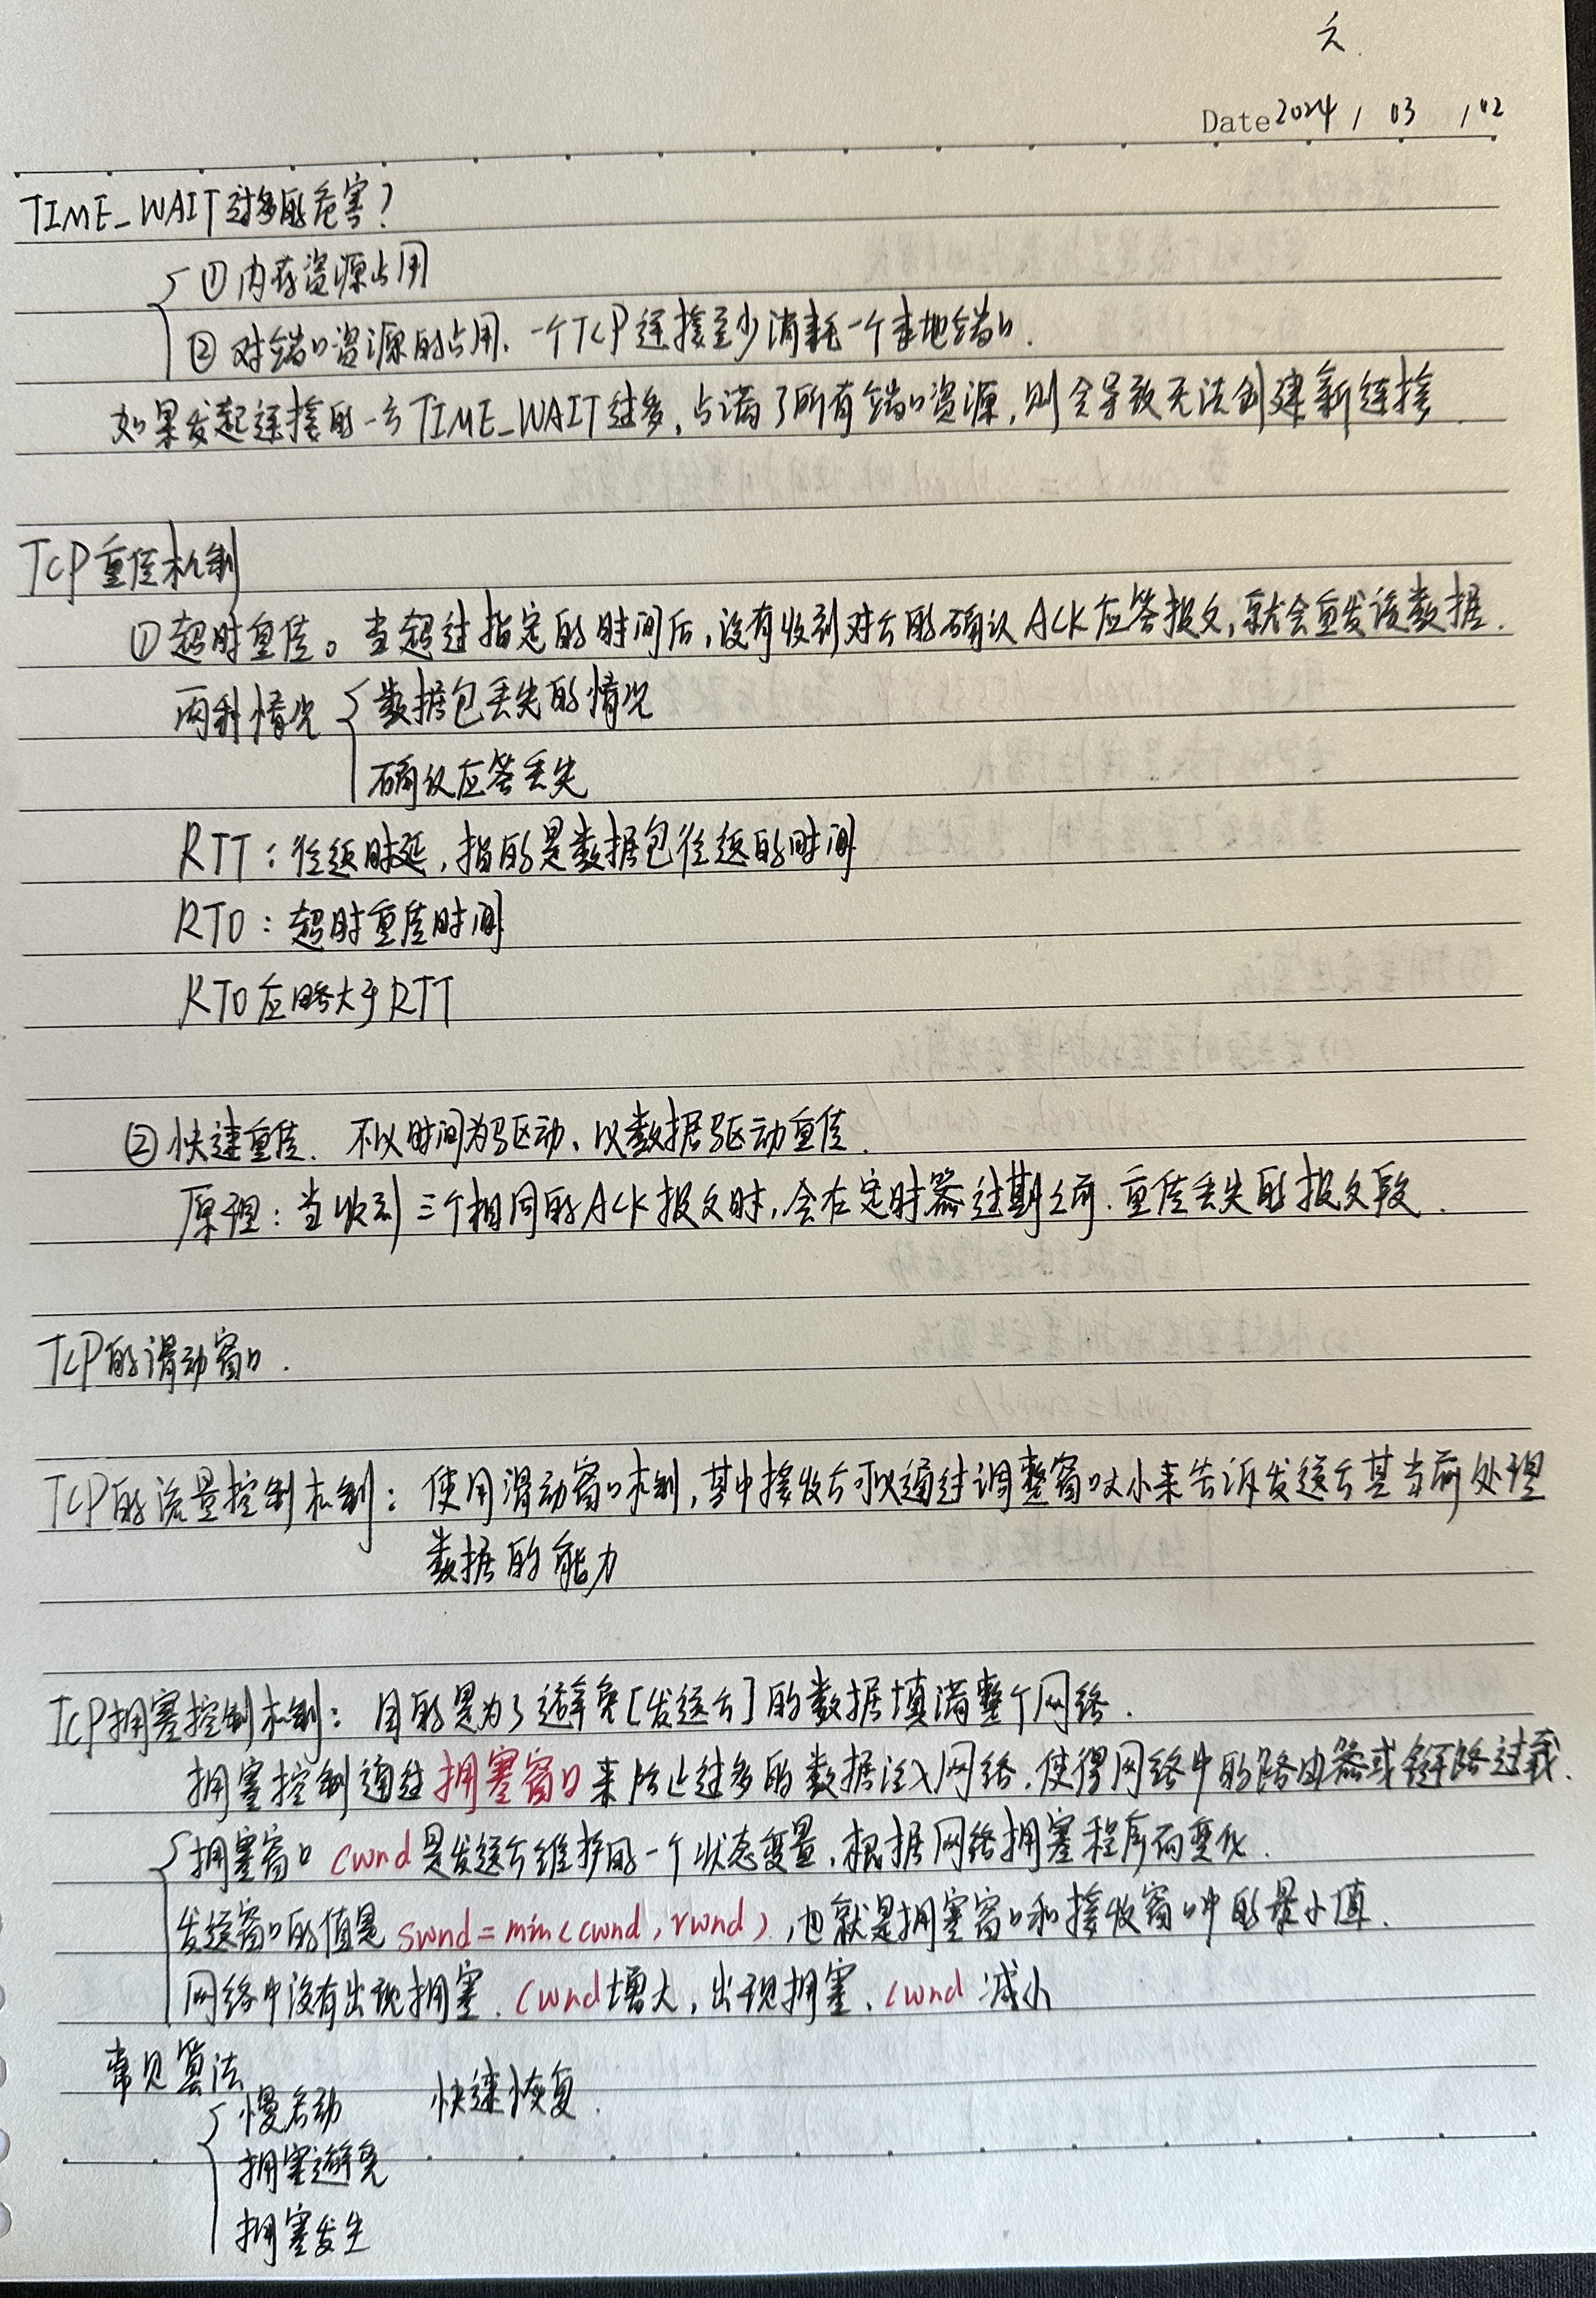 Date 2024 / 03 / 02
TIME_WAIT过多的危害?
① 内存资源占用
② 对端口资源的占用、一个TCP连接至少消耗一个本地端口.
如果发起连接的一方TIME_WAIT过多,占满了所有端口资源,则会导致无法创建新连接.
TCP重传机制
① 超时重传。当超过指定的时间后,没有收到对方的确认ACK应答报文,就会重发该数据.
两种情况 数据包丢失的情况
确认应答丢失
RTT:往返时延,指的是数据包往返的时间
RTO:超时重传时间
RTO应略大于RTT
② 快速重传. 不以时间为驱动、以数据驱动重传.
原理:当收到三个相同的ACK报文时,会在定时器过期之前.重传丢失的报文段.
TCP的滑动窗口.
TCP的流量控制机制: 使用滑动窗口机制,其中接收方可以通过调整窗口大小来告诉发送方其当前处理
数据的能力
TCP拥塞控制机制: 目的是为了避免[发送方]的数据填满整个网络.
拥塞控制通过拥塞窗口来防止过多的数据注入网络.使得网络中的路由器或链路过载.
拥塞窗口cwnd是发送方维护的一个状态变量,根据网络拥塞程序而变化.
发送窗口的值是swnd=min(cwnd,rwnd),也就是拥塞窗口和接收窗口中的最小值.
网络中没有出现拥塞.cwnd增大,出现拥塞、cwnd减小
常见算法
慢启动 快速恢复.
拥塞避免
拥塞发生